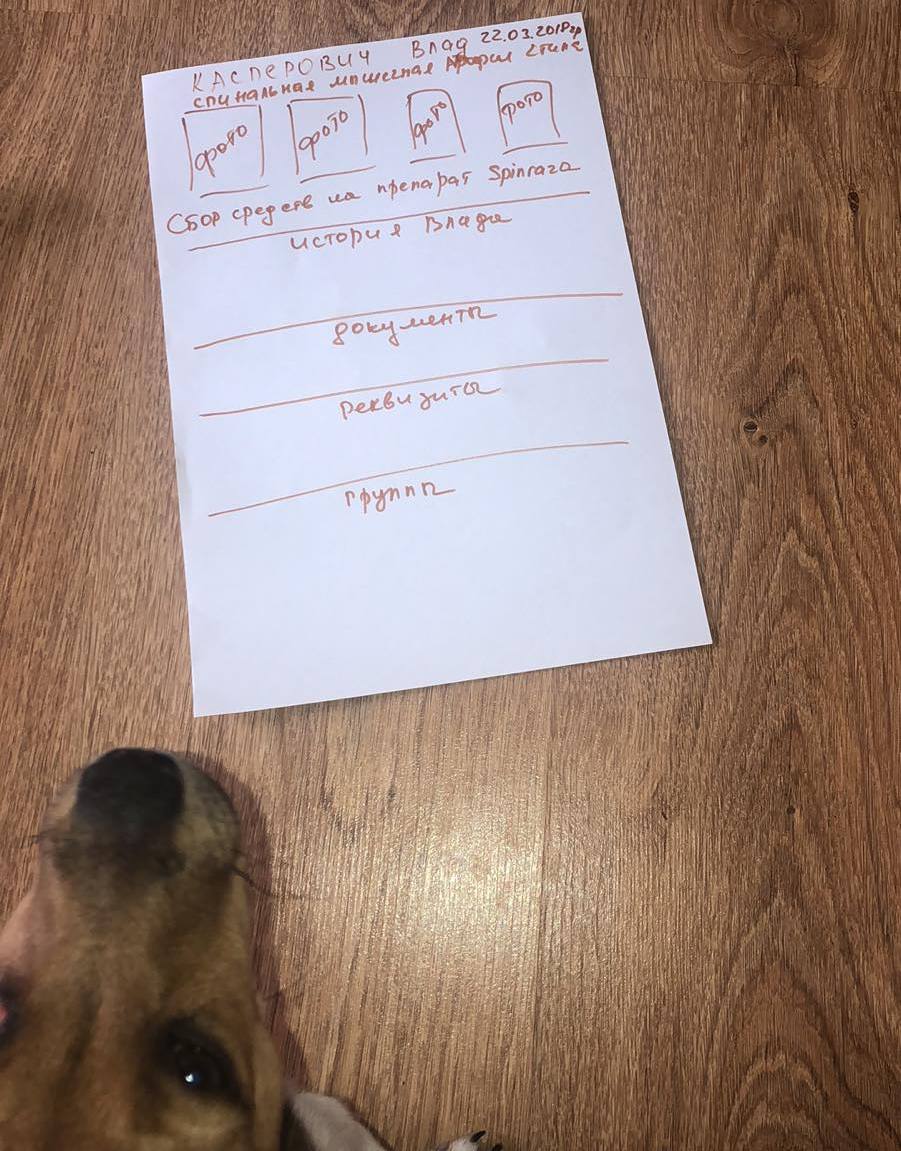 КАСПЕРОВИЧ Влад 22.03.2018гр
спинальная мышечная Атрофия 2типа
фото фото фото фото
Сбор средств на препарат Spinraza
история Влада
документы
реквизиты
группы